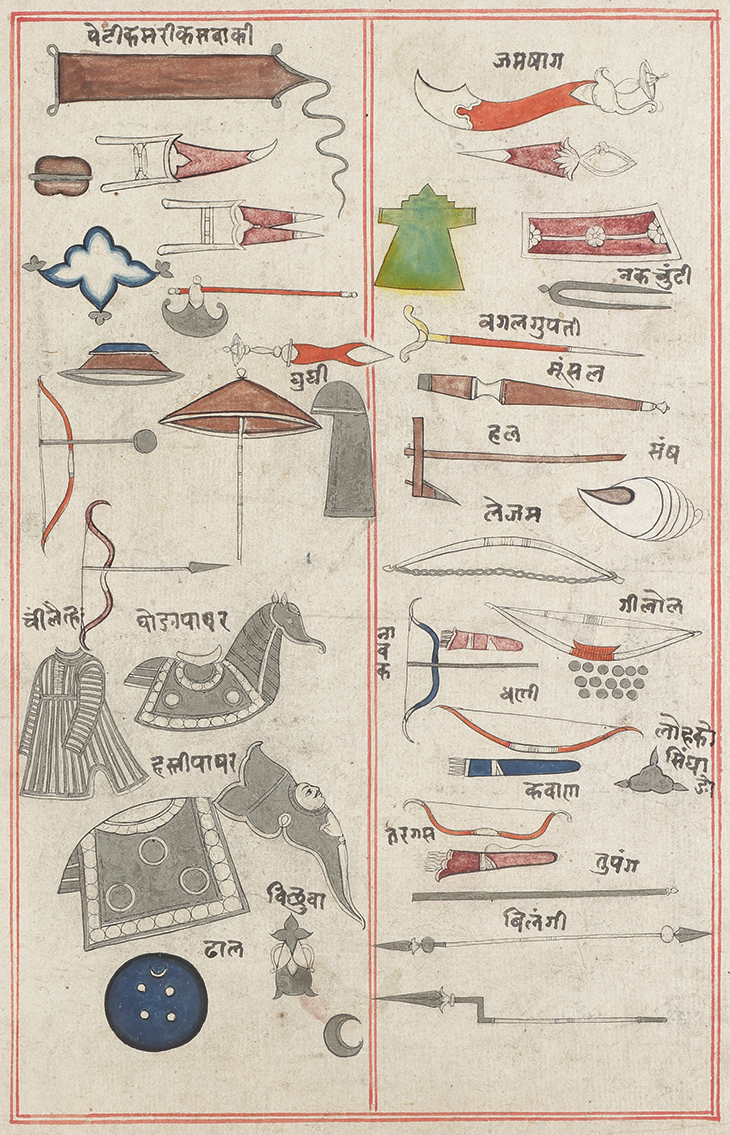 पेटीकमरीकमवाकी
घुघी
चीलैतह
घोडापाषर
हस्तीपाषर
विछुवा
ढाल
जमषाग
नकचुंटी
वगलगुपती
मूंसल
हल
संष
लेजम
गीलोल
नावक
लोहको
सिंघा
डो
कबाण
तरगस
तुपंग
बिलंगी